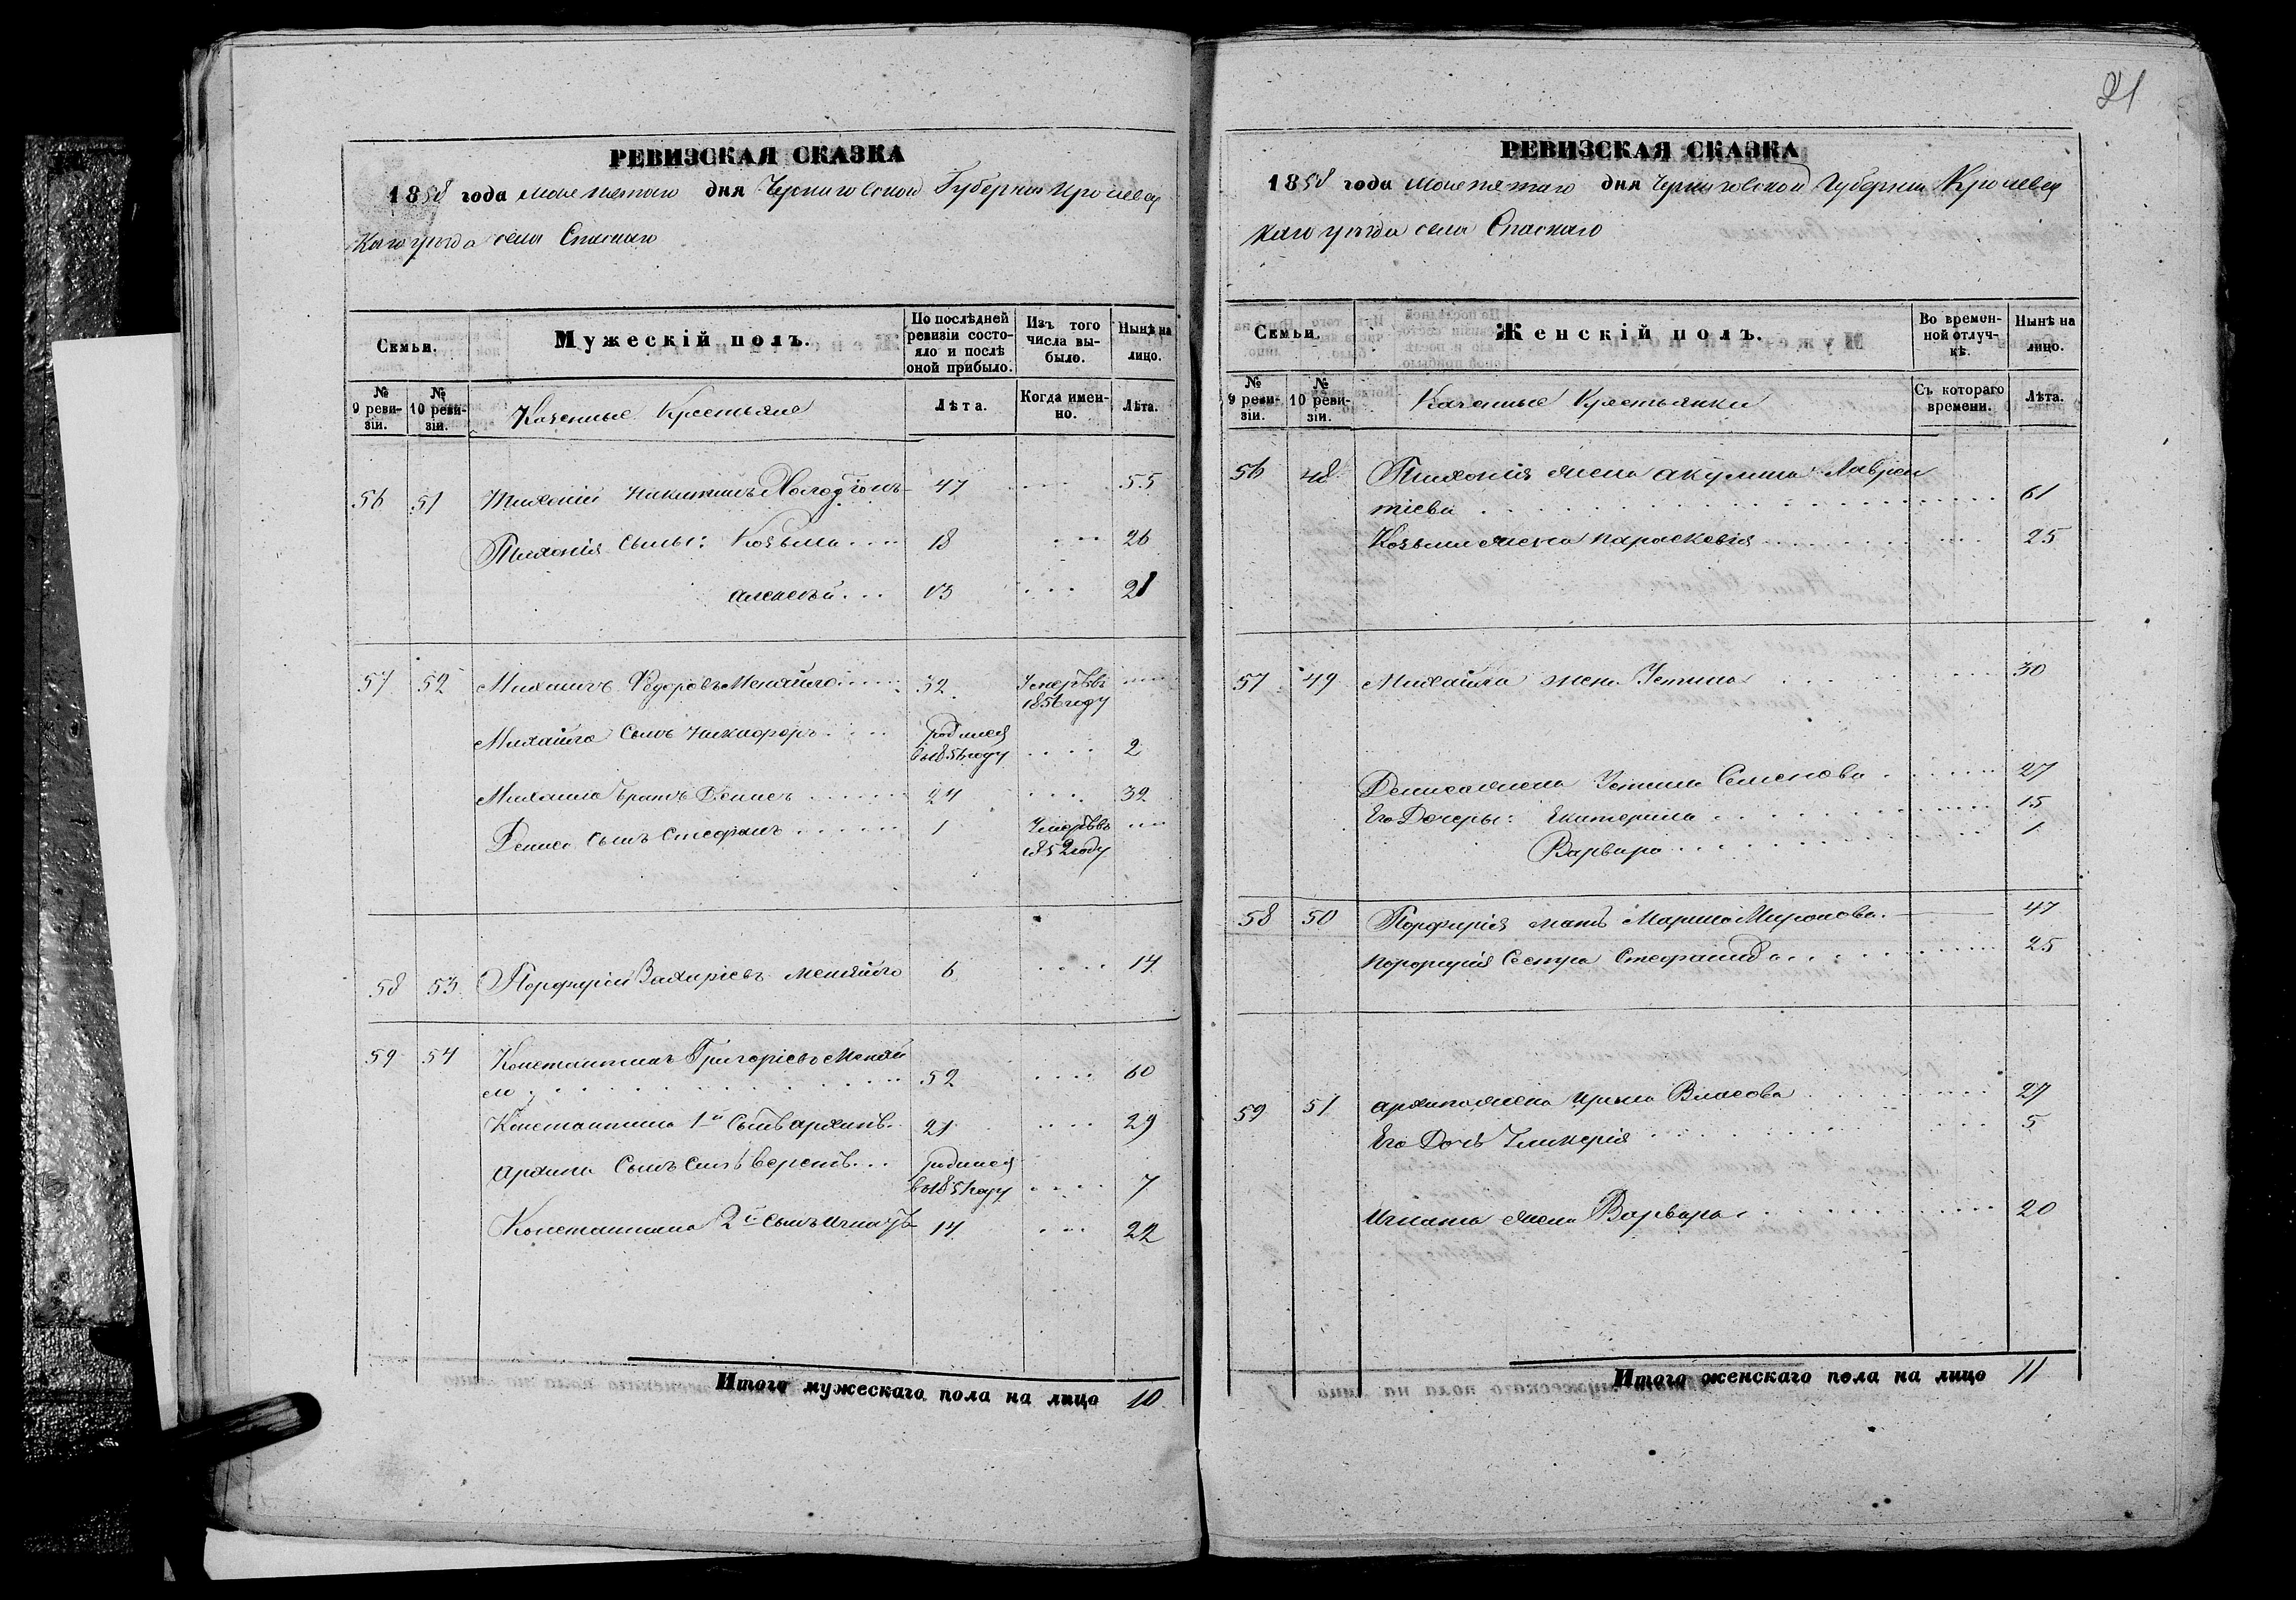 РЕВИЗСКАЯ СКАЗКА
1858 года мая пятаго дня Черниговской Губернии Кролевец
каго уѣзда села Спаскаго
Семьи.
Мужескій полъ.
По послѣдней ревизіи состояло и послѣ оной прибыло.
Изъ того числа выбыло.
Нынѣ на лицо.
№ 9 ревизіи.
№ 10 ревизіи.
Казенные Крестьяне
Лѣта.
Когда именно.
Лѣта.
56 51 Тихоній Никитинъ 47 .... 55
Тихонія Сыны: Козьма .... 18 ... 26
Алексѣй ... 13 ... 21
57 52 Михаилъ Федоровъ Меняйло .... 32 Умеръ въ ....
1856 году
Михайла Сынъ Никифоръ .... Родился
въ 1856 году .... 2
Михаила братъ Денисъ ...... 24 .... 32
Дениса Сынъ Стефанъ ...... 1 Умеръ въ ....
1852 году
58 53 Порфирій Захаріевъ Меняйло 6 .... 14
59 54 Константинъ Григоріевъ Меняй
ло 52 .... 60
Константина 1й Сынъ Архипъ. 21 .... 29
Архипа Сынъ Силѣверстъ... Родился
въ 1851 году .... 7
Константина 2й Сынъ Игнатъ 14 ... 22
Итого мужескаго пола на лицо 10
21
РЕВИЗСКАЯ СКАЗКА
1858 года мая пятаго дня Черниговской Губернии Кролевец
каго уѣзда села Спаскаго
Семьи.
Женскій полъ.
Во временной отлучкѣ.
Нынѣ на лицо.
№ 9 ревизіи.
№ 10 ревизіи.
Казенные Крестьянки
Съ котораго времени.
Лѣта.
56 48 Тихонія жена Акулина Лаврен
тіева 61
Козьмы жена Параскевія 25
57 49 Михайла жена Устина 30
Дениса жена Устина Семенова 27
Его Дочеры: Екатерина 15
Варвара 1
58 50 Порфирія мать Марина Миронова. 47
Порфирія Сестра Стефанида 25
59 51 Архипа жена Ирина Власова 27
Его Дочь Гликерія 5
Игната жена Варвара 20
Итого женскаго пола на лицо 11